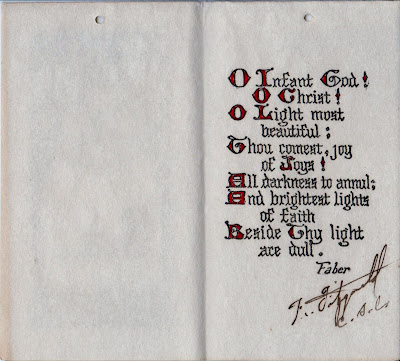 O Infant God!
O Christ!
O Light most
beautiful;
Thou comest, joy
of Joys!
All darkness to annul;
And brightest lights
of faith
Beside Thy light
are dull.
Faber